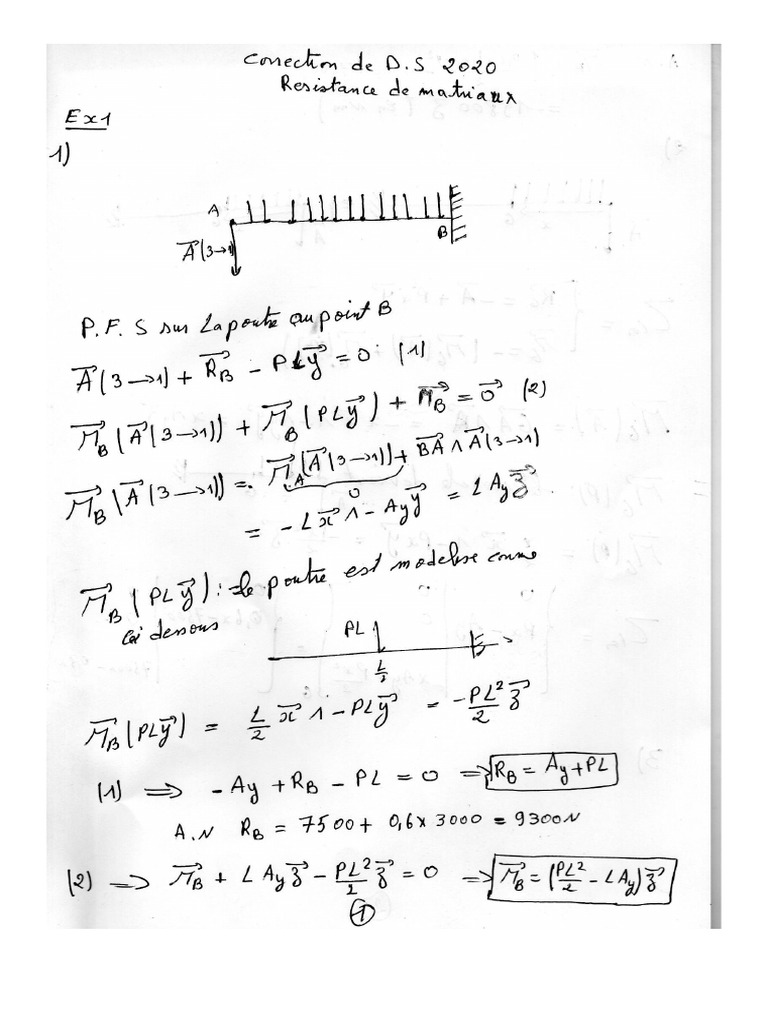 Correction de D.S 2020
Resistance de matriaux
Ex1
1)
A
B
A⃗(3→1)
P.F.S sur La poutre au point B
A⃗(3→1) + R⃗_B - PLy⃗ = 0⃗ (1)
M⃗_B(A⃗(3→1)) + M⃗_B(PLy⃗) + M⃗_B = 0⃗ (2)
M⃗_B(A⃗(3→1)) = M⃗_A(A⃗(3→1)) + BA⃗ ∧ A⃗(3→1)
0
= -Lx⃗ ∧ -Ay y⃗ = L Ay z⃗
M⃗_B(PLy⃗) : le poutre est modelise comme
ci dessous
PL
L/2
B
M⃗_B(PLy⃗) = L/2 x⃗ ∧ -PLy⃗ = -PL²/2 z⃗
(1) ⟹ -Ay + R_B - PL = 0 ⟹ R_B = Ay + PL
A.N R_B = 7500 + 0,6 x 3000 = 9300N
(2) ⟹ M⃗_B + L Ay z⃗ - PL²/2 z⃗ = 0 ⟹ M⃗_B = (PL²/2 - LAy) z⃗
1